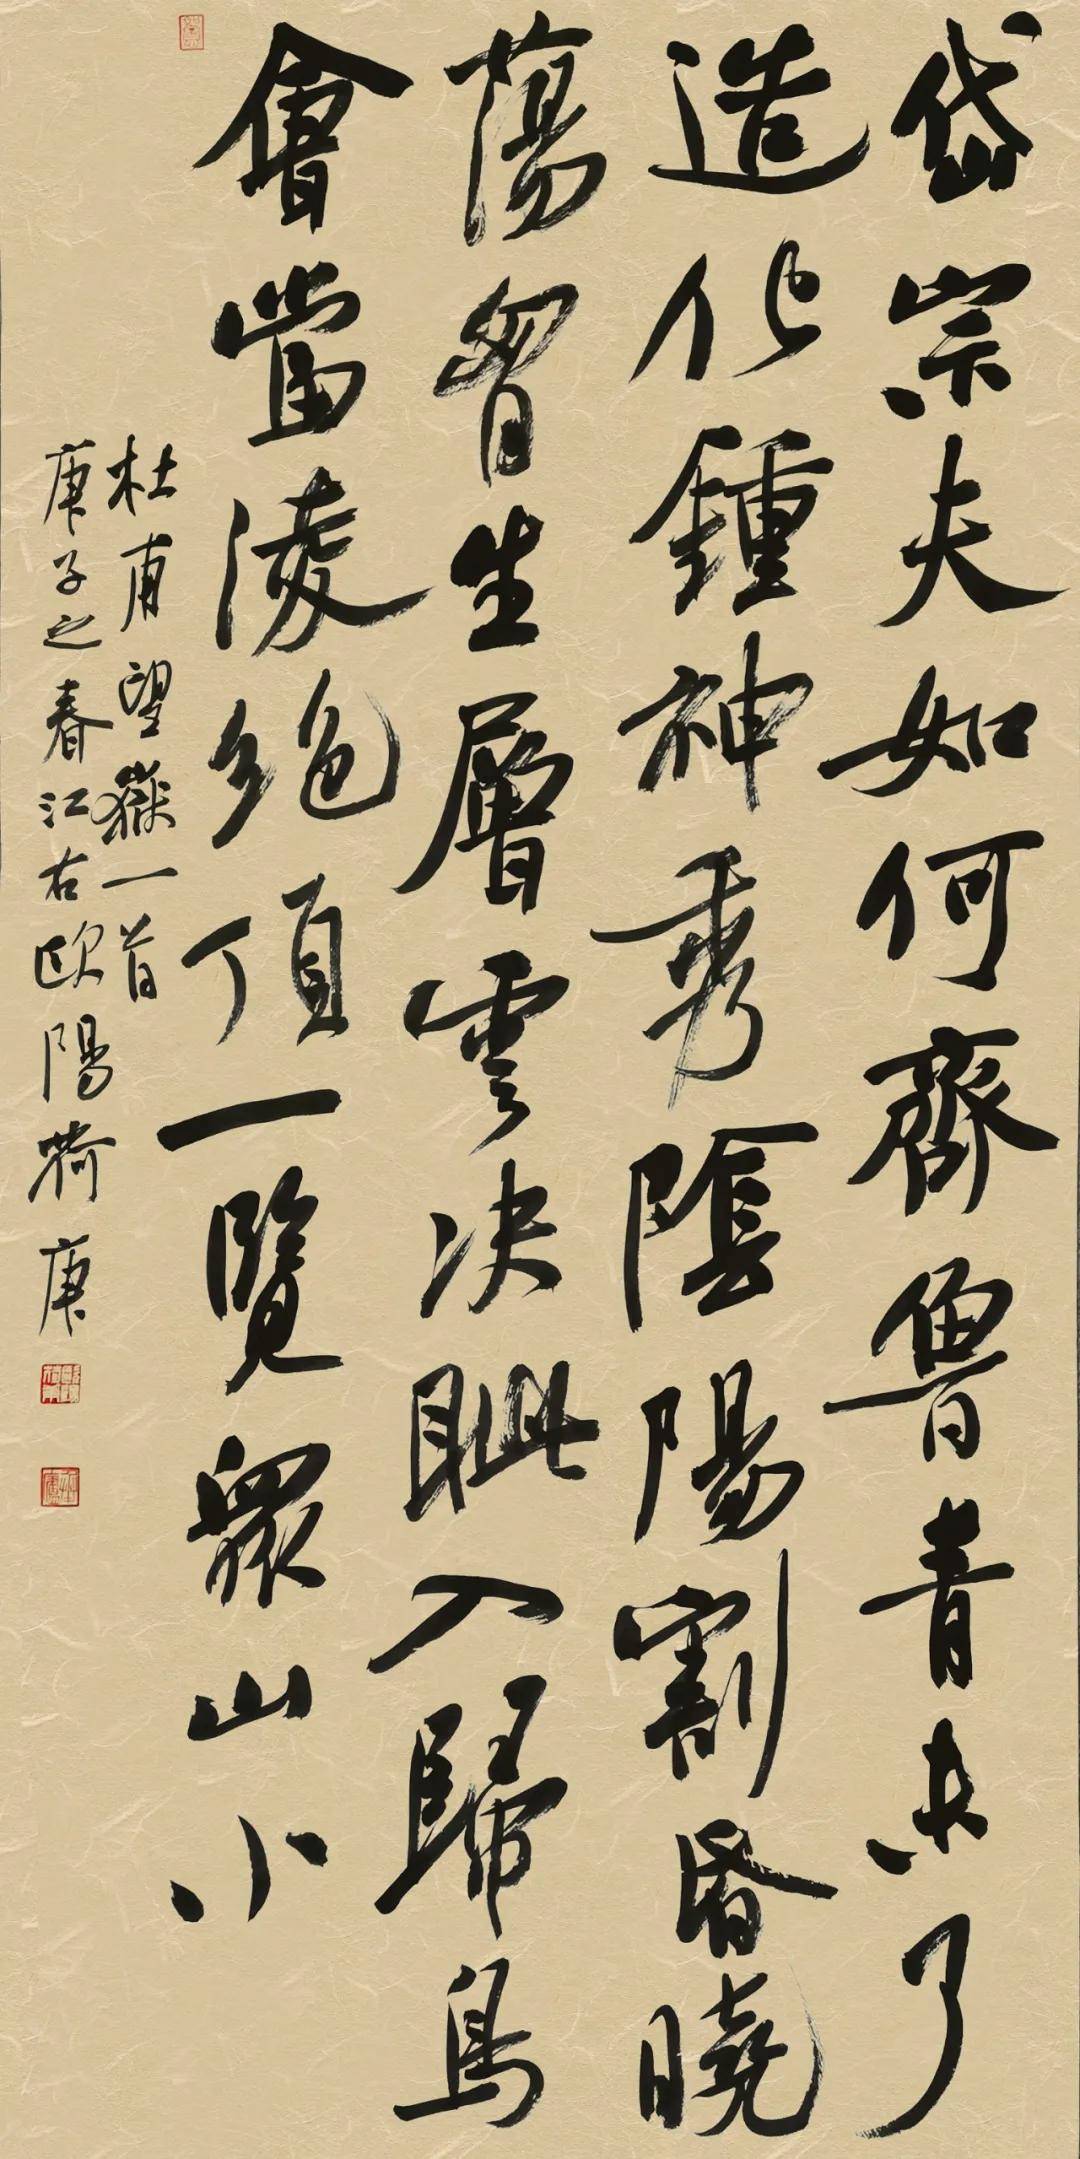 岱宗夫如何齊魯青未了
造化鍾神秀陰陽割昏曉
蕩胷生層雲決眦入歸鳥
會當凌絕頂一覽衆山小
杜甫望嶽一首
庚子之春江右歐陽荷庚